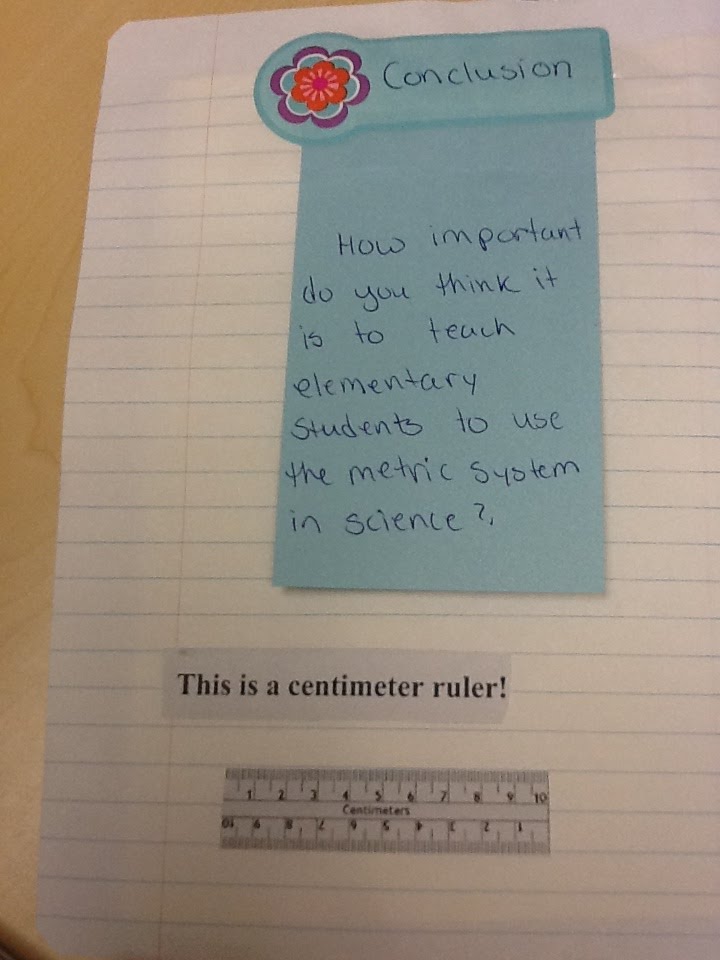 Conclusion
How important
do you think it
is to teach
elementary
students to use
the metric system
in science?
This is a centimeter ruler!
1 2 3 4 5 6 7 8 9 10
Centimeters
10 9 8 7 6 5 4 3 2 1